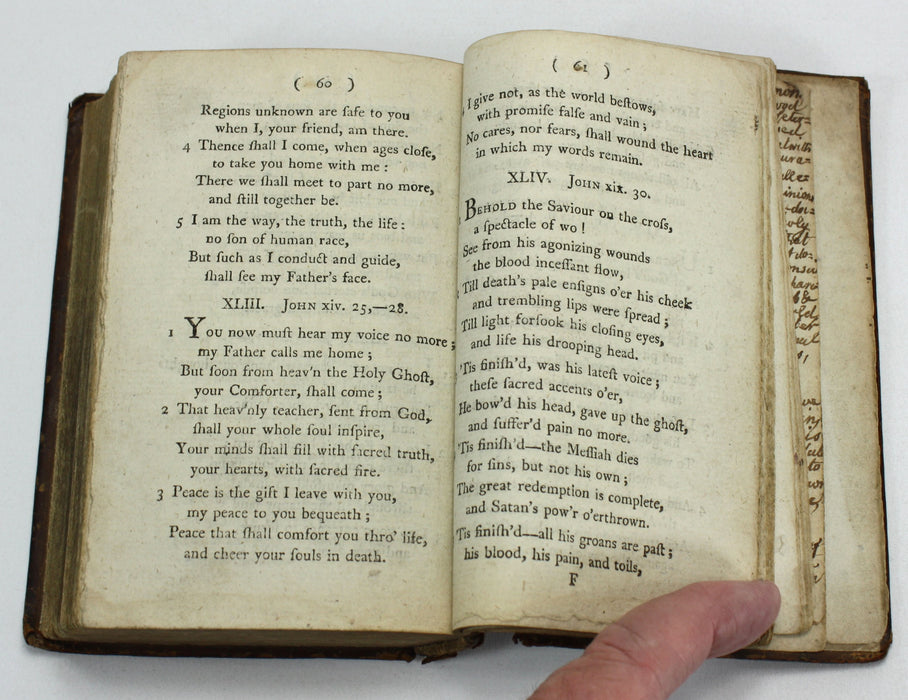 ( 60 )
Regions unknown are ſafe to you
when I, your friend, am there.
4 Thence ſhall I come, when ages cloſe,
to take you home with me :
There we ſhall meet to part no more,
and ſtill together be.
5 I am the way, the truth, the life :
no ſon of human race,
But ſuch as I conduct and guide,
ſhall ſee my Father's face.
XLIII. JOHN xiv. 25,—28.
1 YOU now muſt hear my voice no more ;
my Father calls me home ;
But ſoon from heav'n the Holy Ghoſt,
your Comforter, ſhall come ;
2 That heav'nly teacher, ſent from God,
ſhall your whole ſoul inſpire,
Your minds ſhall fill with ſacred truth,
your hearts, with ſacred fire.
3 Peace is the gift I leave with you,
my peace to you bequeath ;
Peace that ſhall comfort you thro' life,
and cheer your ſouls in death.
( 61 )
I give not, as the world beſtows,
with promiſe falſe and vain ;
No cares, nor fears, ſhall wound the heart
in which my words remain.
XLIV. JOHN xix. 30.
BEHOLD the Saviour on the croſs,
a ſpectacle of wo !
See from his agonizing wounds
the blood inceſſant flow,
Till death's pale enſigns o'er his cheek
and trembling lips were ſpread ;
Till light forſook his cloſing eyes,
and life his drooping head.
'Tis finiſh'd, was his lateſt voice ;
theſe ſacred accents o'er,
He bow'd his head, gave up the ghoſt,
and ſuffer'd pain no more.
'Tis finiſh'd—the Meſſiah dies
for ſins, but not his own ;
The great redemption is complete,
and Satan's pow'r o'erthrown.
'Tis finiſh'd—all his groans are paſt ;
his blood, his pain, and toils,
F